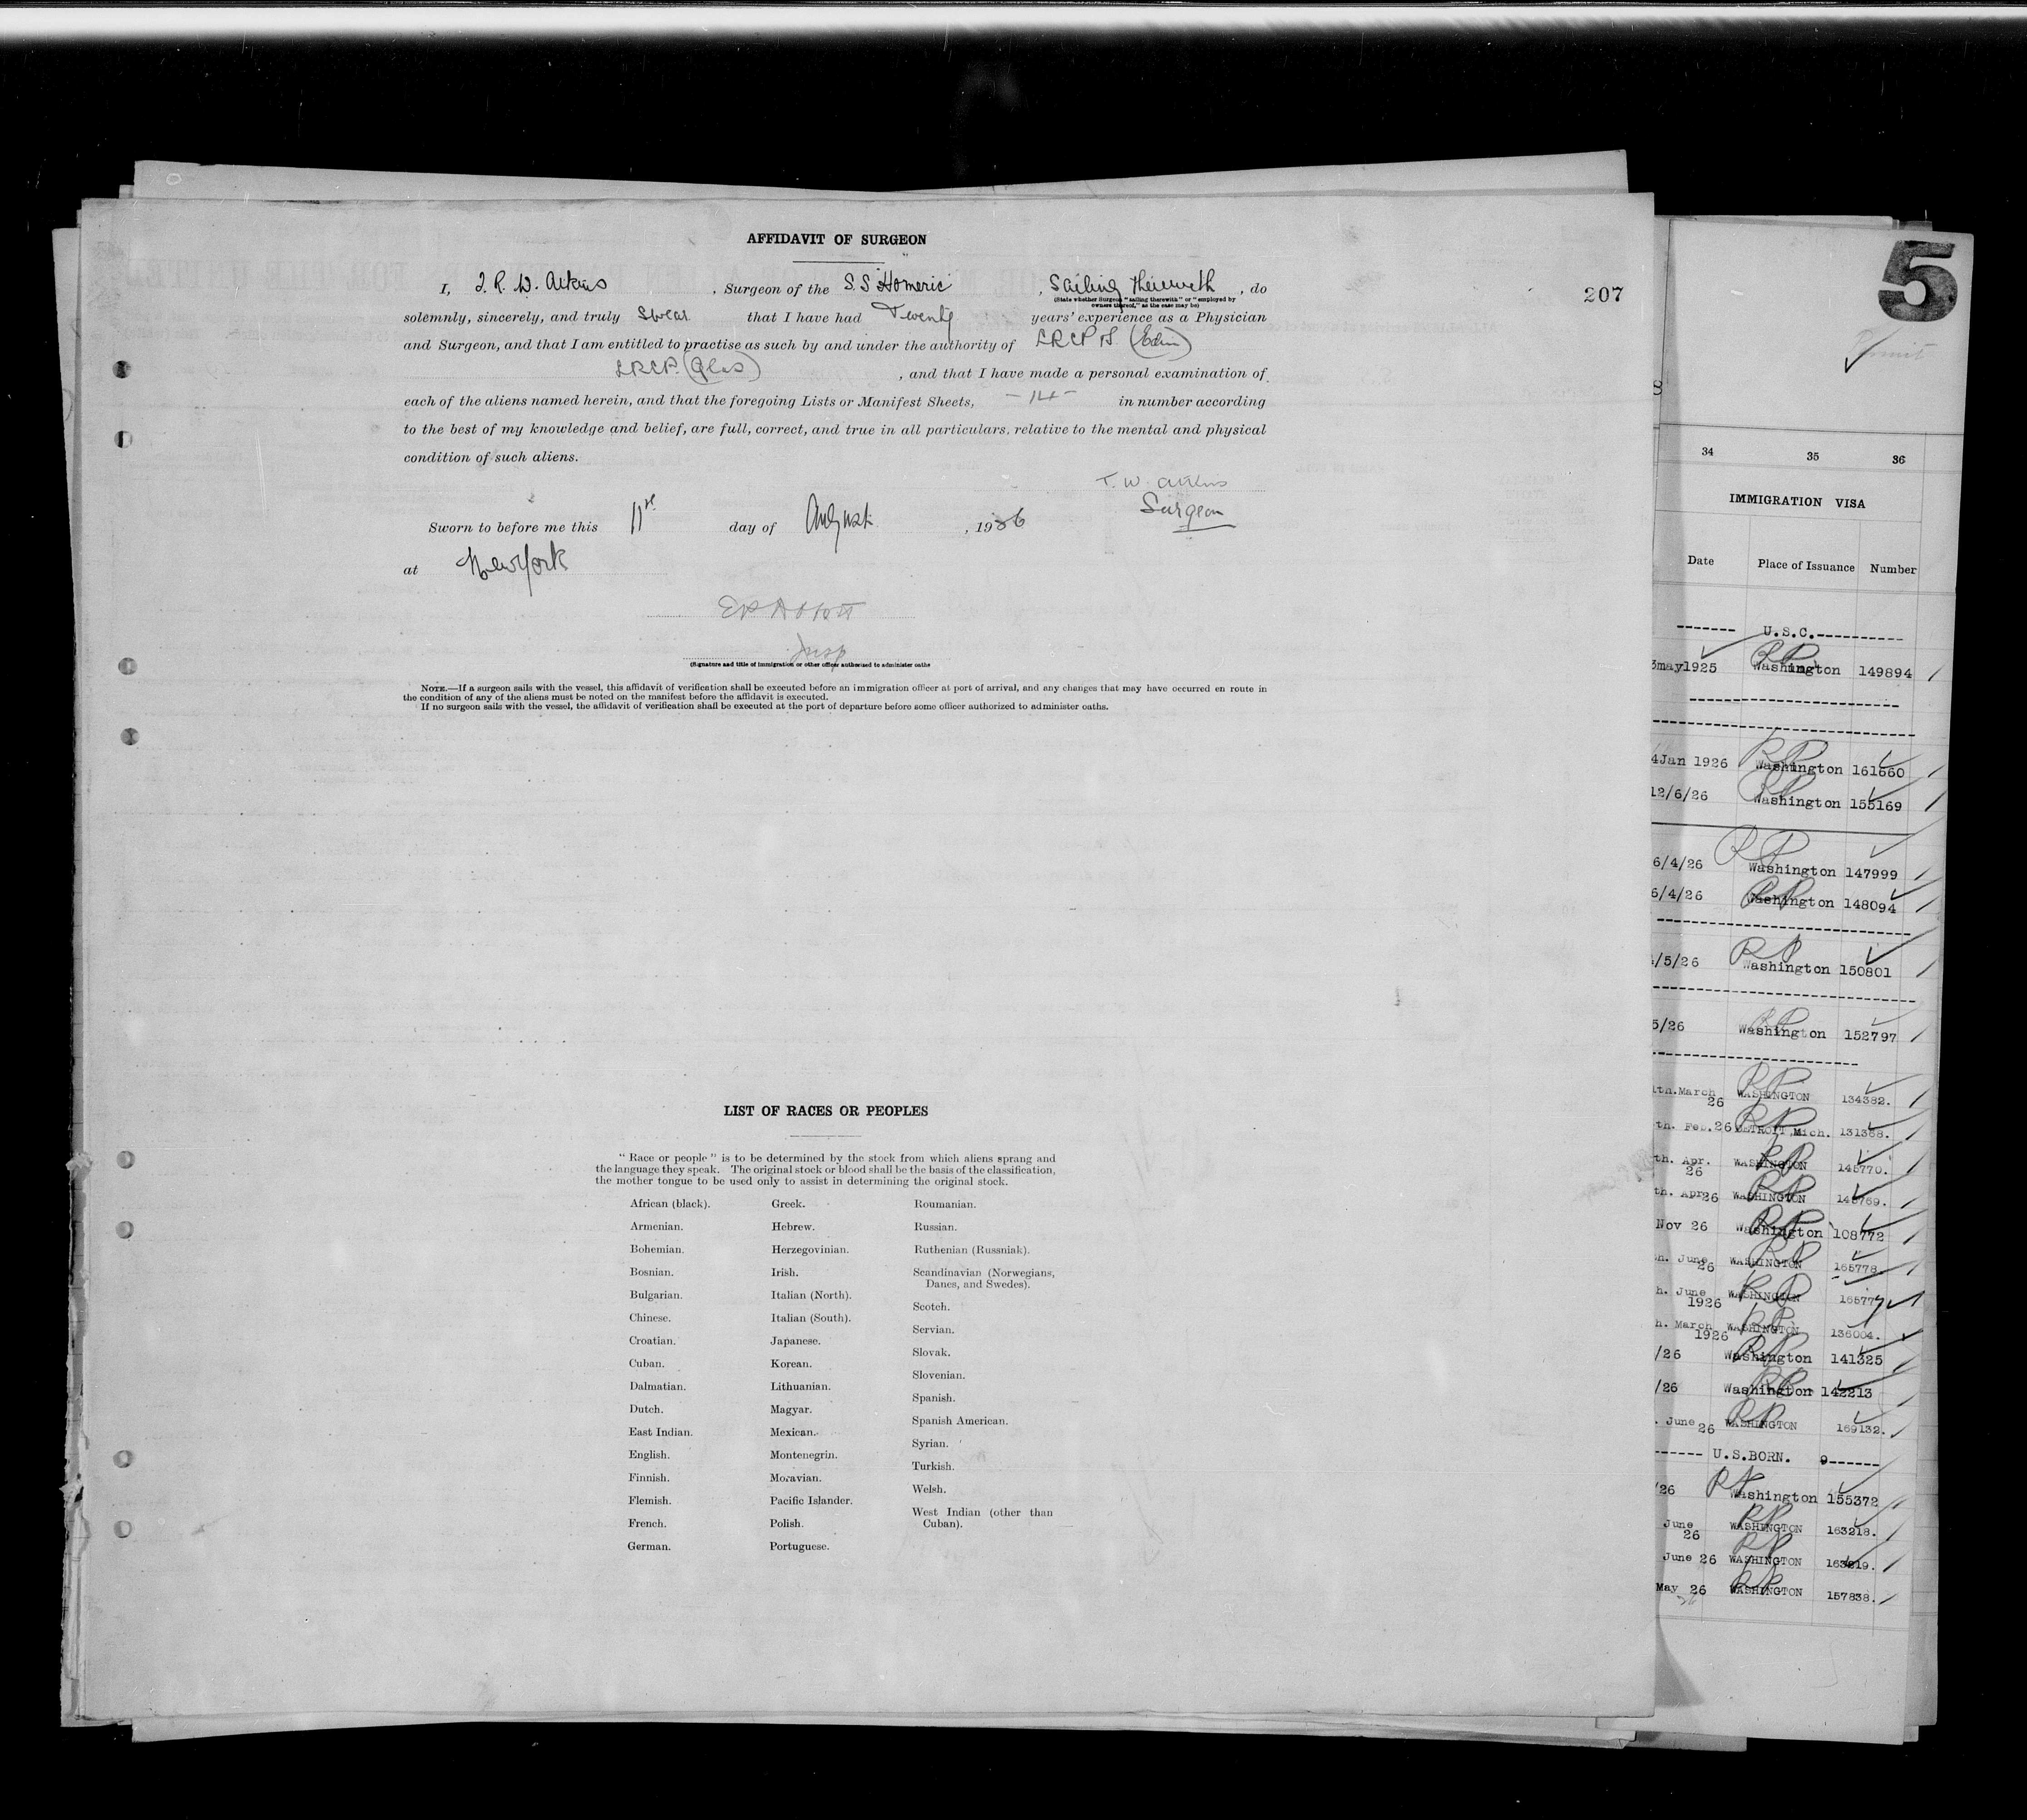 AFFIDAVIT OF SURGEON
I, J. R. W. Atkins , Surgeon of the S.S Homeric , Sailing therewith , do
(State whether Surgeon "sailing therewith" or "employed by
owners thereof," as the case may be)
solemnly, sincerely, and truly swear that I have had Twenty years' experience as a Physician
and Surgeon, and that I am entitled to practise as such by and under the authority of LRCP S. (Edin)
LRCP. (Glas) , and that I have made a personal examination of
each of the aliens named herein, and that the foregoing Lists or Manifest Sheets, - 14 - in number according
to the best of my knowledge and belief, are full, correct, and true in all particulars, relative to the mental and physical
condition of such aliens.
T. W. Atkins
Surgeon
Sworn to before me this 11th day of August , 1926
at New York
Insp
(Signature and title of immigration or other officer authorized to administer oaths
NOTE.—If a surgeon sails with the vessel, this affidavit of verification shall be executed before an immigration officer at port of arrival, and any changes that may have occurred en route in
the condition of any of the aliens must be noted on the manifest before the affidavit is executed.
If no surgeon sails with the vessel, the affidavit of verification shall be executed at the port of departure before some officer authorized to administer oaths.
LIST OF RACES OR PEOPLES
" Race or people " is to be determined by the stock from which aliens sprang and
the language they speak. The original stock or blood shall be the basis of the classification,
the mother tongue to be used only to assist in determining the original stock.
African (black).
Armenian.
Bohemian.
Bosnian.
Bulgarian.
Chinese.
Croatian.
Cuban.
Dalmatian.
Dutch.
East Indian.
English.
Finnish.
Flemish.
French.
German.
Greek.
Hebrew.
Herzegovinian.
Irish.
Italian (North).
Italian (South).
Japanese.
Korean.
Lithuanian.
Magyar.
Mexican.
Montenegrin.
Moravian.
Pacific Islander.
Polish.
Portuguese.
Roumanian.
Russian.
Ruthenian (Russniak).
Scandinavian (Norwegians,
Danes, and Swedes).
Scotch.
Servian.
Slovak.
Slovenian.
Spanish.
Spanish American.
Syrian.
Turkish.
Welsh.
West Indian (other than
Cuban).
207
5
34 35 36
IMMIGRATION VISA
Date Place of Issuance Number
------- U.S.C.-----------
3may1925 Washington 149894
4Jan 1926 Washington 161660
12/6/26 Washington 155169
6/4/26 Washington 147999
6/4/26 Washington 148094
/5/26 Washington 150801
5/26 Washington 152797
th.March 26 WASHINGTON 134382.
th. Feb.26 DETROIT,Mich. 131368.
th. Apr. 26 WASHINGTON 145770.
th. Apr26 WASHINGTON 145769.
Nov 26 Washington 108772
h. June 26 WASHINGTON 165778
h. June 1926 WASHINGTON 165777
h. March 1926 WASHINGTON 136004.
/26 Washington 141325
/26 Washington 142213
. June 26 WASHINGTON 169132.
------ U.S.BORN. 9------
/26 Washington 155372
June 26 WASHINGTON 163218.
June 26 WASHINGTON 163219.
May 26 WASHINGTON 157838.